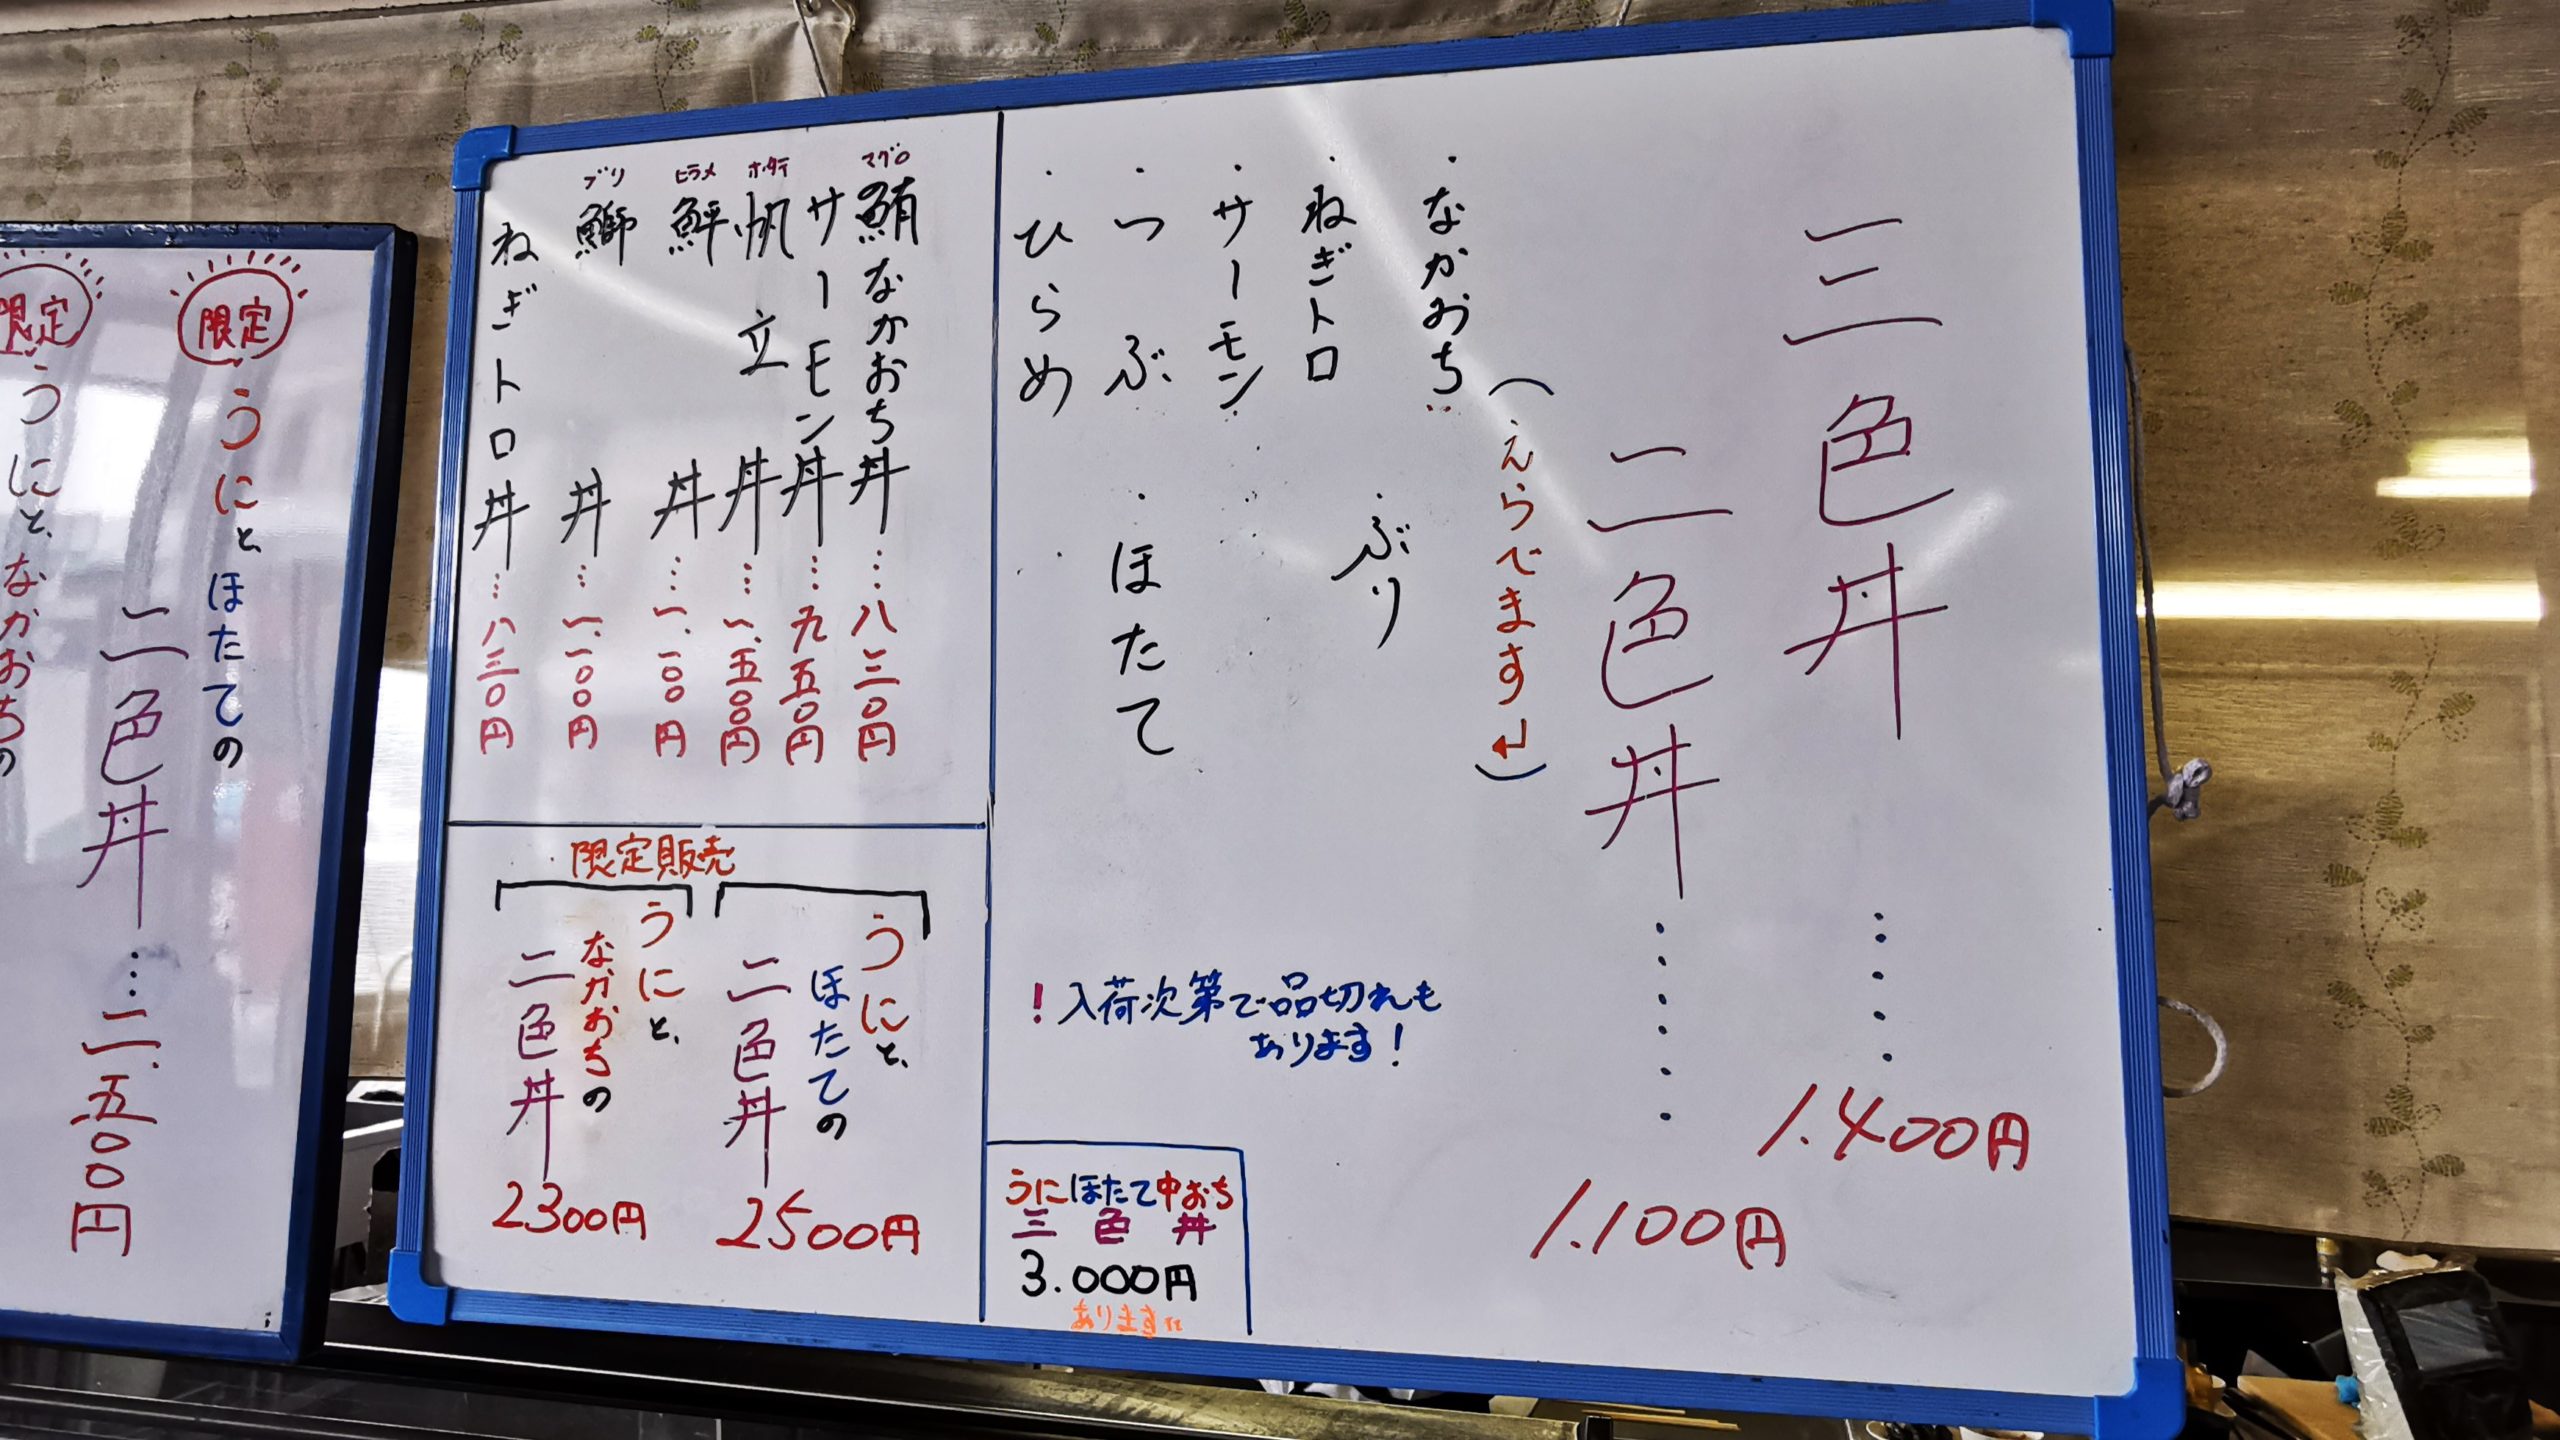 三色丼……1.400円
二色丼……1.100円
(えらべます↲)
・なかおち
・ねぎトロ
・ぶり
・サーモン
・つぶ
・ほたて
・ひらめ
！入荷次第で品切れも
あります！
うにほたて中おち
三色丼
3.000円
あります
マグロ
鮪なかおち丼…八三〇円
サーモン丼…九五〇円
ホタテ
帆立丼…一.五〇〇円
ヒラメ
鮃丼…一.一〇〇円
ブリ
鰤丼…一.一〇〇円
ねぎトロ丼…八三〇円
限定販売
うにと、
ほたての
二色丼
2500円
うにと、
なかおちの
二色丼
2300円
限定
うにと、ほたての
二色丼…二.五〇〇円
限定
うにと、なかおちの